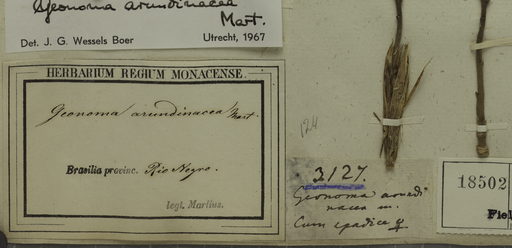 Geonoma arundinacea
Mart.
Det. J. G. Wessels Boer Utrecht, 1967
HERBARIUM REGIUM MONACENSE.
Geonoma arundinacea Mart.
Brasilia provinc. Rio Negro.
legt. Martius.
124
3127.
Geonoma arundi
nacea m.
Cum spadice ♀
18502
Fiel